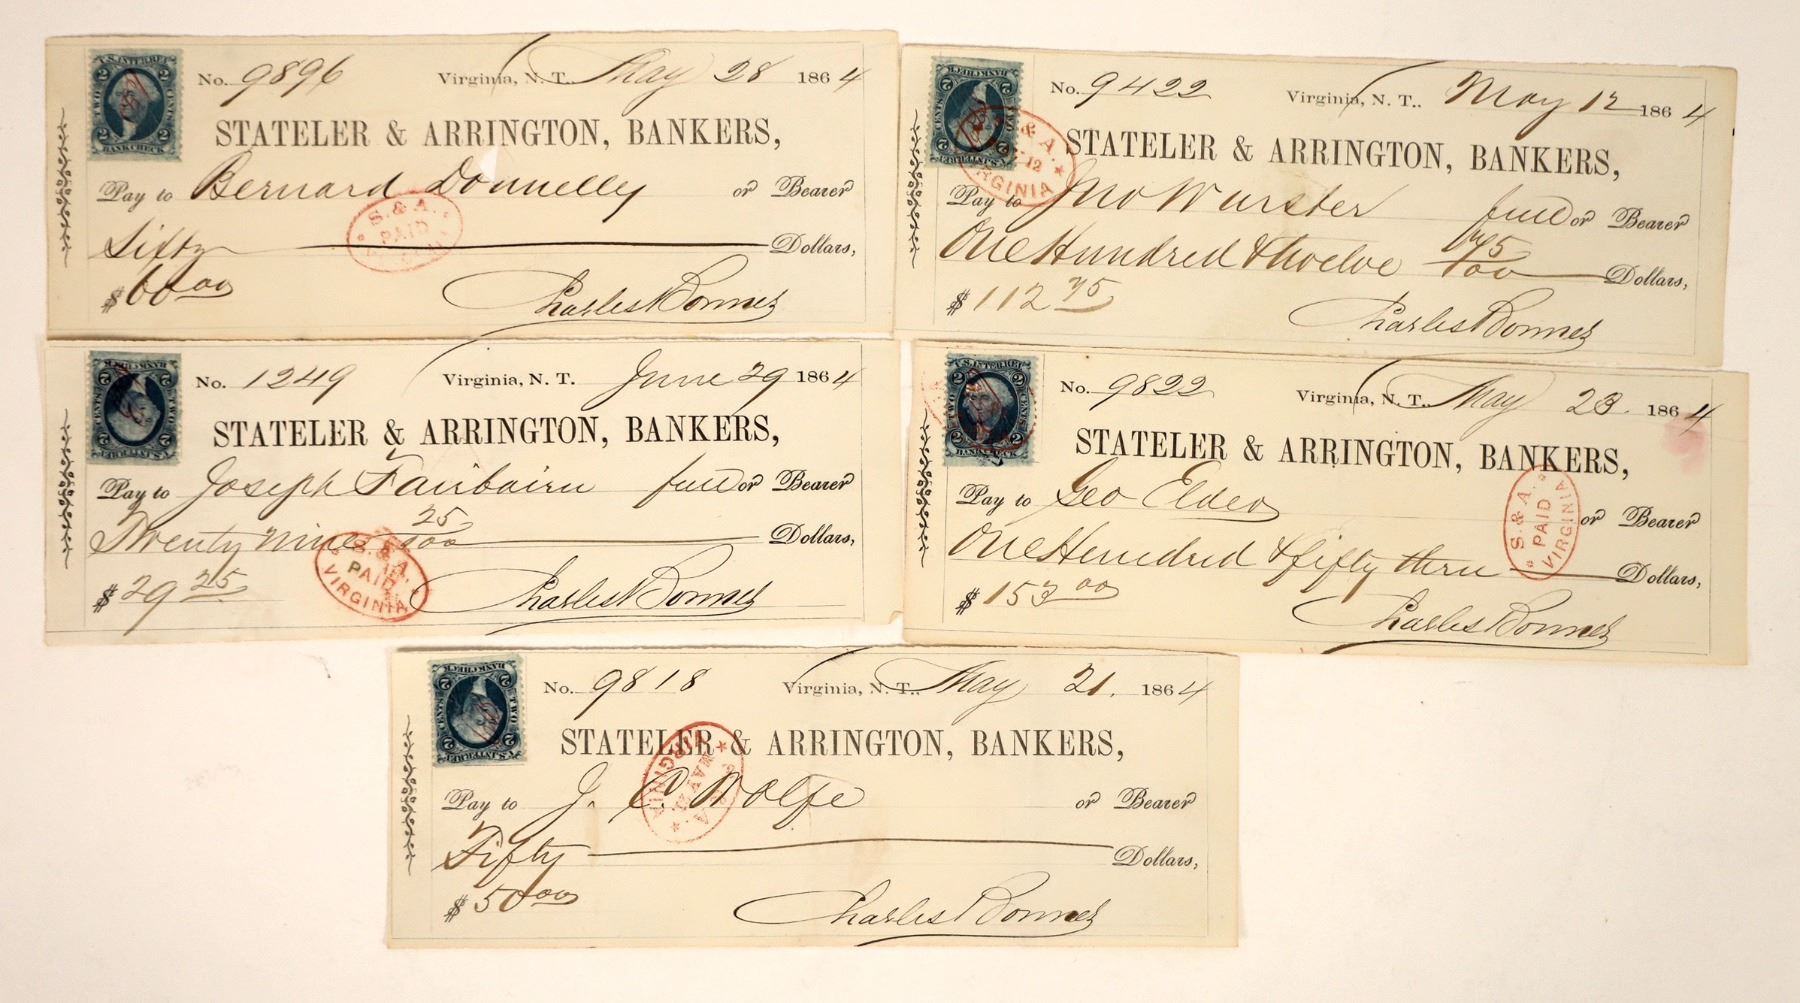 U.S. INTER. REV.
2 2
TWO CENTS
2 2
BANK CHECK
No. 9896 Virginia, N. T., May 28 1864
STATELER & ARRINGTON, BANKERS,
Pay to Bernard Donnelly or Bearer
Dollars,
S. & A.
PAID
$ 60.00
Charles Bonner
U.S. INTER. REV.
2 2
TWO CENTS
2 2
BANK CHECK
No. 9422 Virginia, N. T., May 12 1864
STATELER & ARRINGTON, BANKERS,
Pay to Jno Wurster or Bearer
One Hundred & twelve 75/100 Dollars,
S. & A.
12
VIRGINIA
$ 112 75
Charles Bonner
U.S. INTER. REV.
2 2
TWO CENTS
2 2
BANK CHECK
No. 1249 Virginia, N. T. June 29 1864
STATELER & ARRINGTON, BANKERS,
Pay to Joseph Fairbairn or Bearer
Twenty nine 25/100 Dollars,
S. & A.
PAID
VIRGINIA
$ 29 25
Charles Bonner
U.S. INTER. REV.
2 2
TWO CENTS
2 2
BANK CHECK
No. 9822 Virginia, N. T., May 23. 1864
STATELER & ARRINGTON, BANKERS,
Pay to Geo Elder or Bearer
One Hundred & fifty three Dollars,
S. & A.
PAID
VIRGINIA
$ 153 00
Charles Bonner
U.S. INTER. REV.
2 2
TWO CENTS
2 2
BANK CHECK
No. 9818 Virginia, N. T., May 21. 1864
STATELER & ARRINGTON, BANKERS,
Pay to J. Wolfe or Bearer
Fifty Dollars,
MAY
VIRGINIA
$ 50.00
Charles Bonner